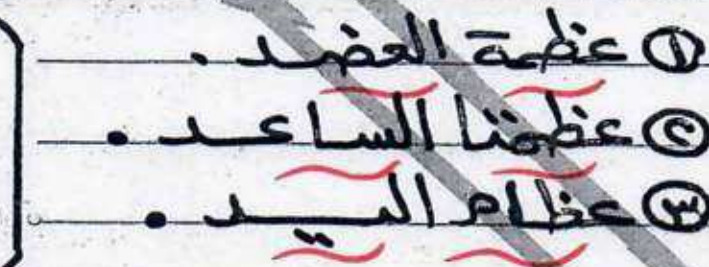 ① عظمة العضد .
② عظمتا الساعد .
③ عظام اليد .